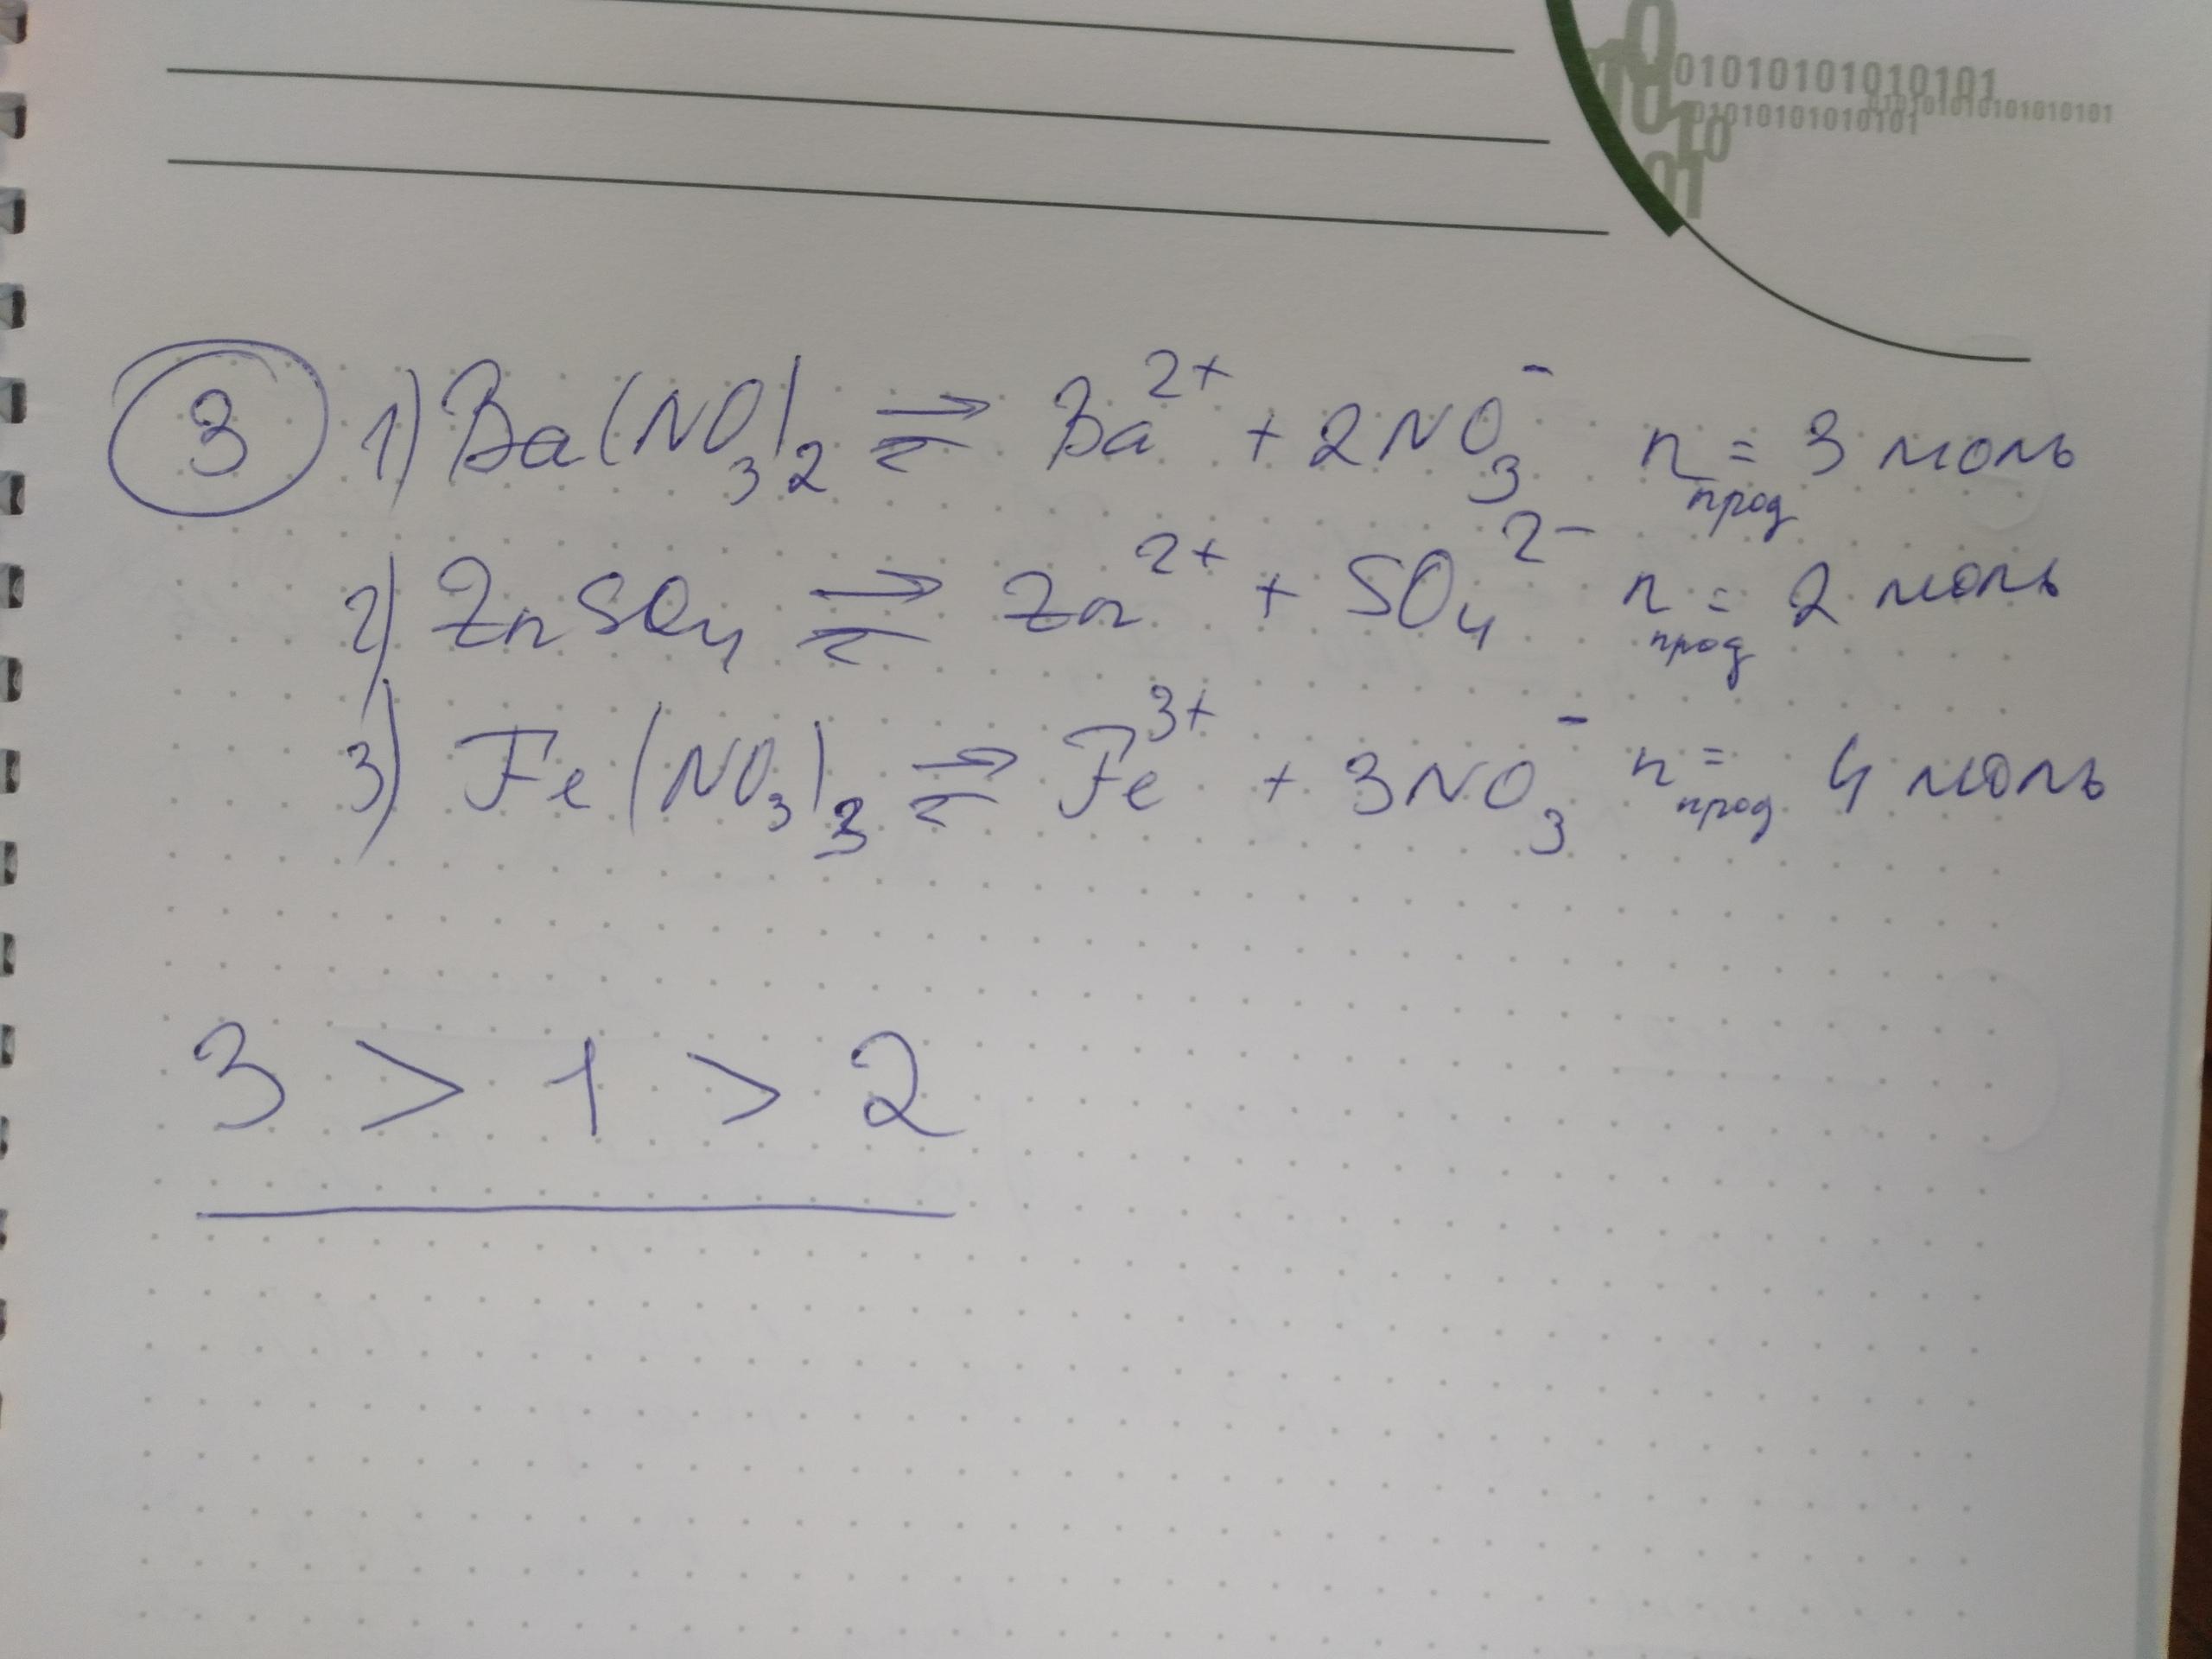 01010101010101
010101010101010101
01010101010101
10
01
3 1) Ba(NO₃)₂ ⇌ Ba²⁺ + 2NO₃⁻ n прод = 3 моль
2) ZnSO₄ ⇌ Zn²⁺ + SO₄²⁻ n прод = 2 моль
3) Fe(NO₃)₃ ⇌ Fe³⁺ + 3NO₃⁻ n прод = 4 моль
3 > 1 > 2